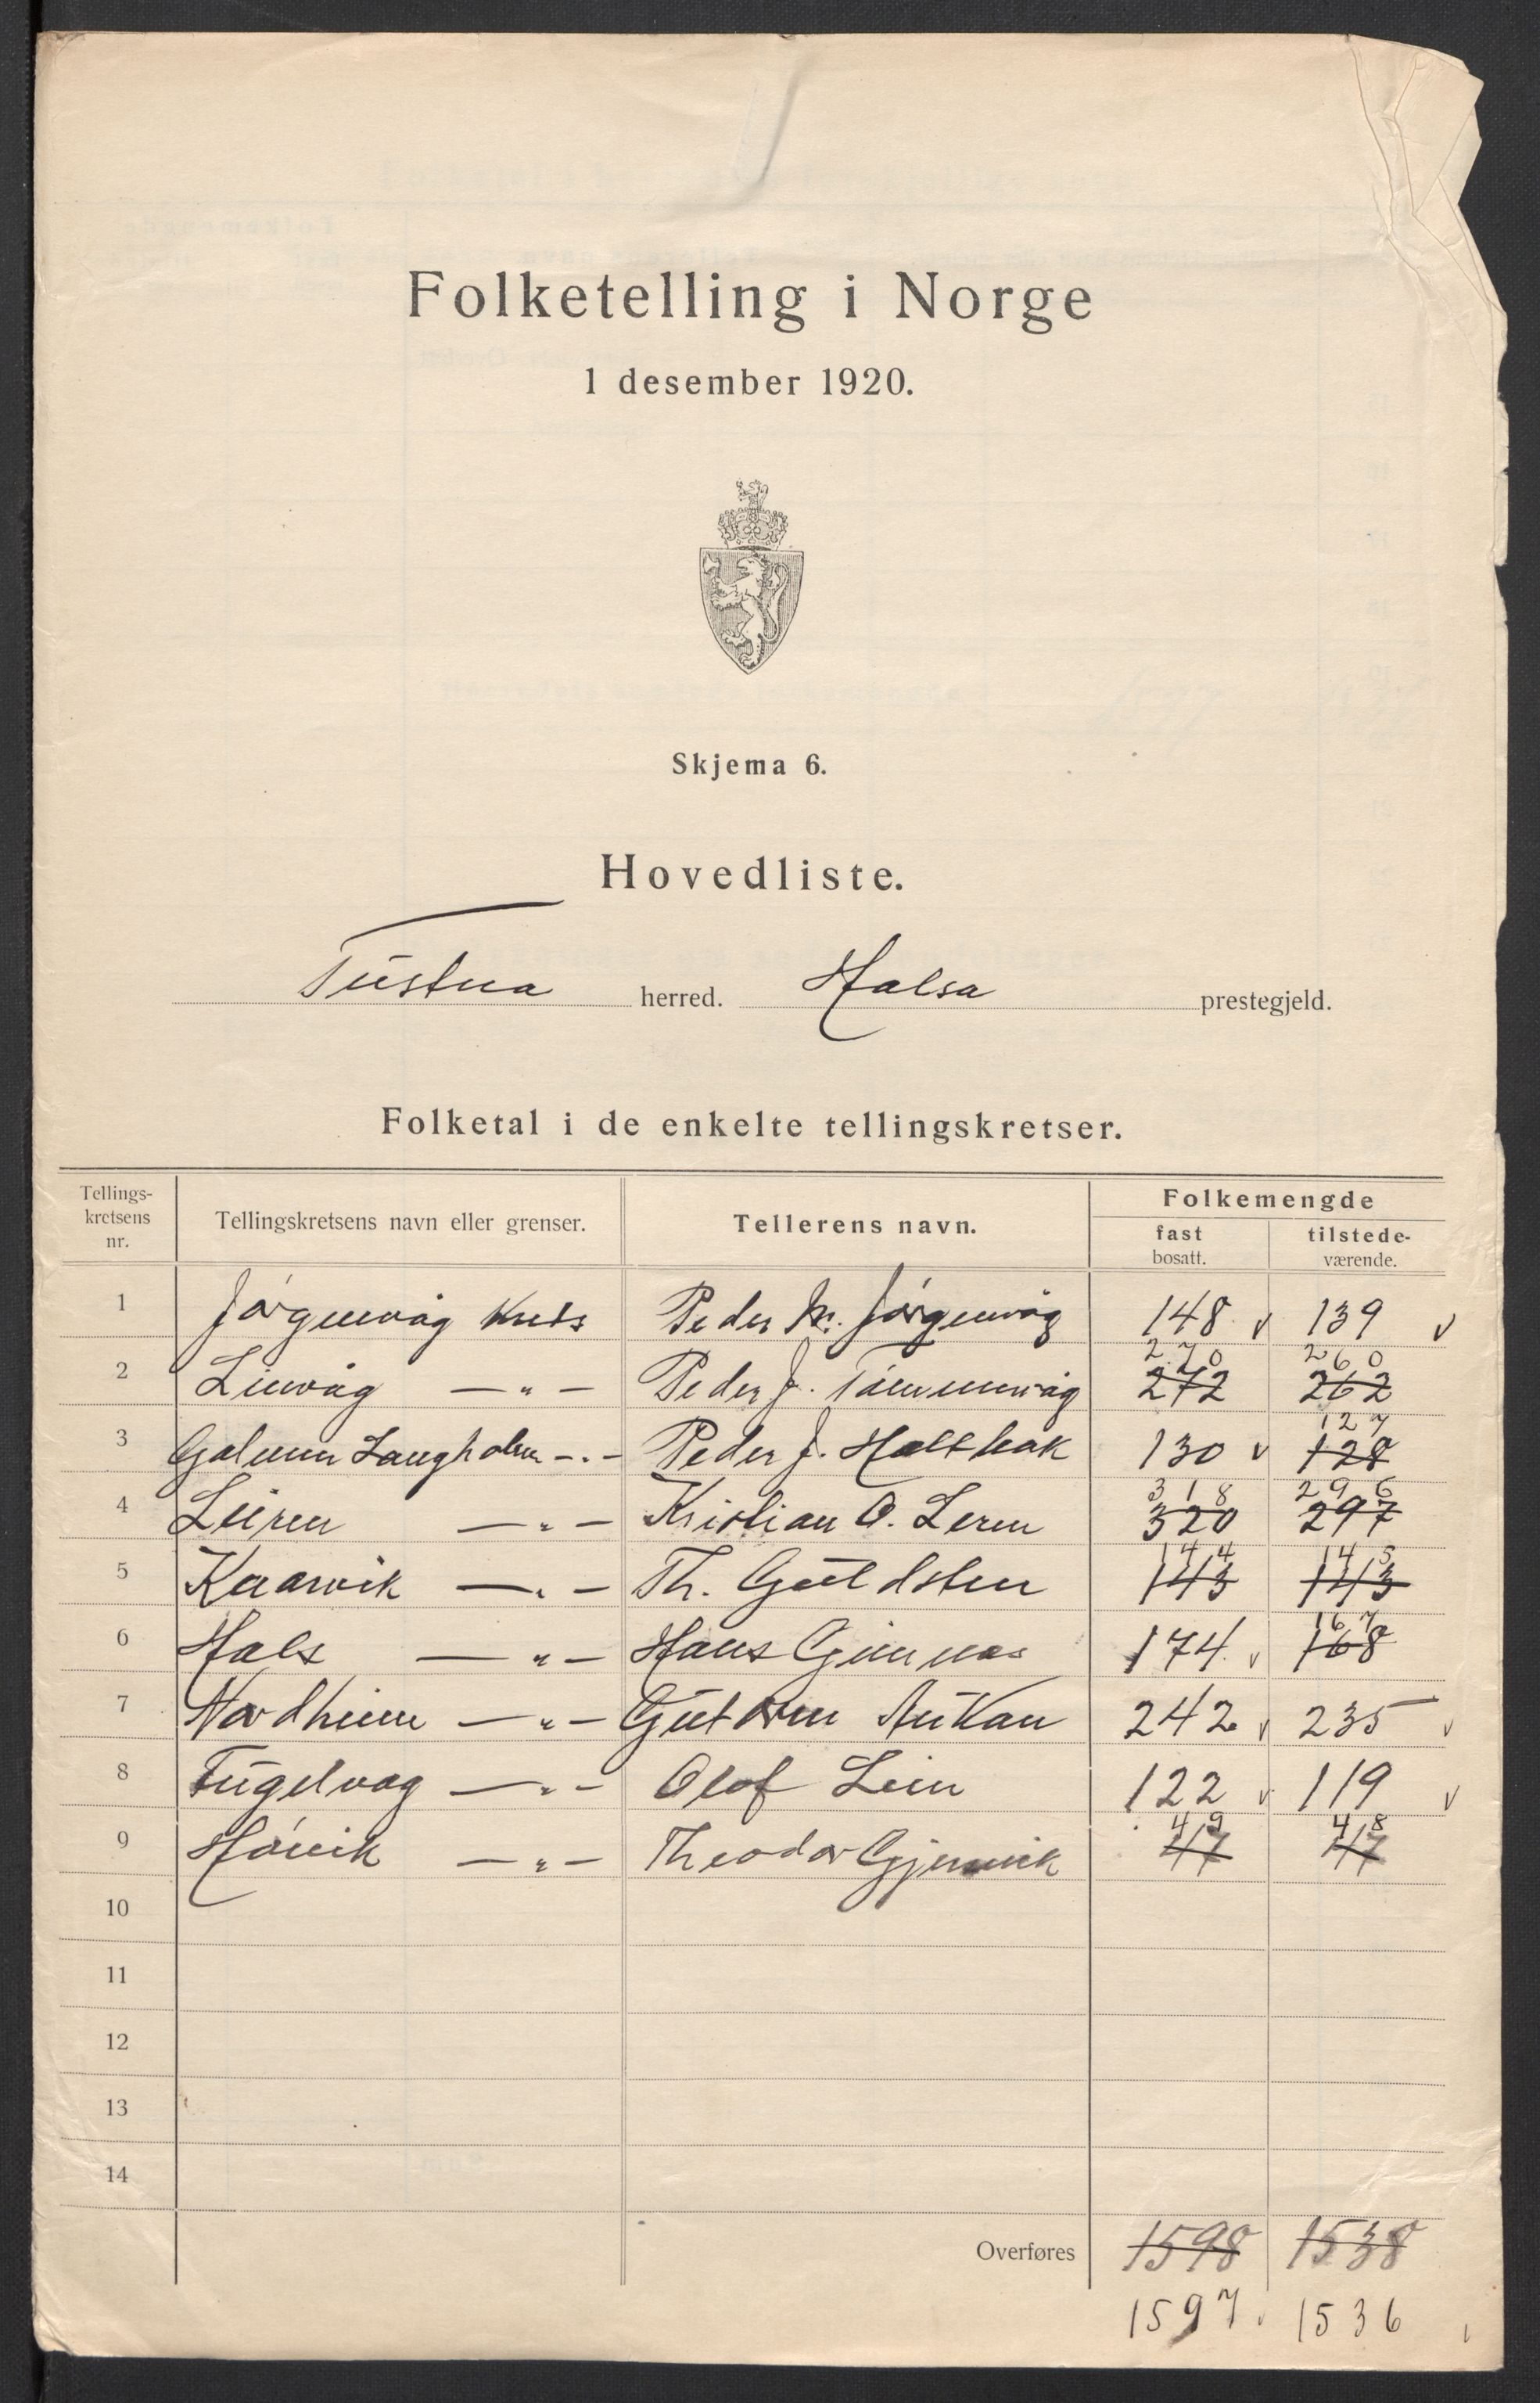 Folketelling i Norge
1 desember 1920.
Skjema 6.
Hovedliste.
Tustna herred. Halsa prestegjeld.
Folketal i de enkelte tellingskretser.
Tellings-kretsens nr. Tellingskretsens navn eller grenser. Tellerens navn. Folkemengde
fast bosatt. tilstede-værende.
1 Jörgenvåg Krets Peder Kr. Jörgenvåg 148 v 139 v
270 260
2 Lienvåg — " — Peder J. 272 262
127
3 Langholm - " - Peder J. Holtbak 130 v 128
318 296
4 Leiren — " — Kristian O. Leren 320 297
144 145
5 Kaarvik — " — Th. Guldsten 143 143
167
6 Hals — " — Hans Gimnes 174 v 168
7 Nordheim — " — Gutorm Aukan 242 v 235 v
8 Fugelvag — " — Olof Lein 122 v 119 v
49 48
9 Hövik — " — Theodor Gjernvik 47 47
10
11
12
13
14
Overføres 1598 1538
1597 v 1536